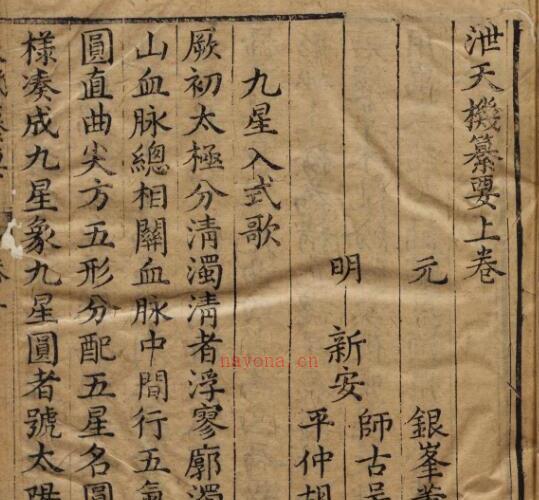 泄天機纂要上卷
元 銀峯
明 新安
師古吳
平仲胡
九星入式歌
厥初太極分清濁清者浮寥廓濁
山血脉總相關血脉中間行五氣
圓直曲尖方五形分配五星名圓
樣湊成九星象九星圓者號太陽
nayona.cn